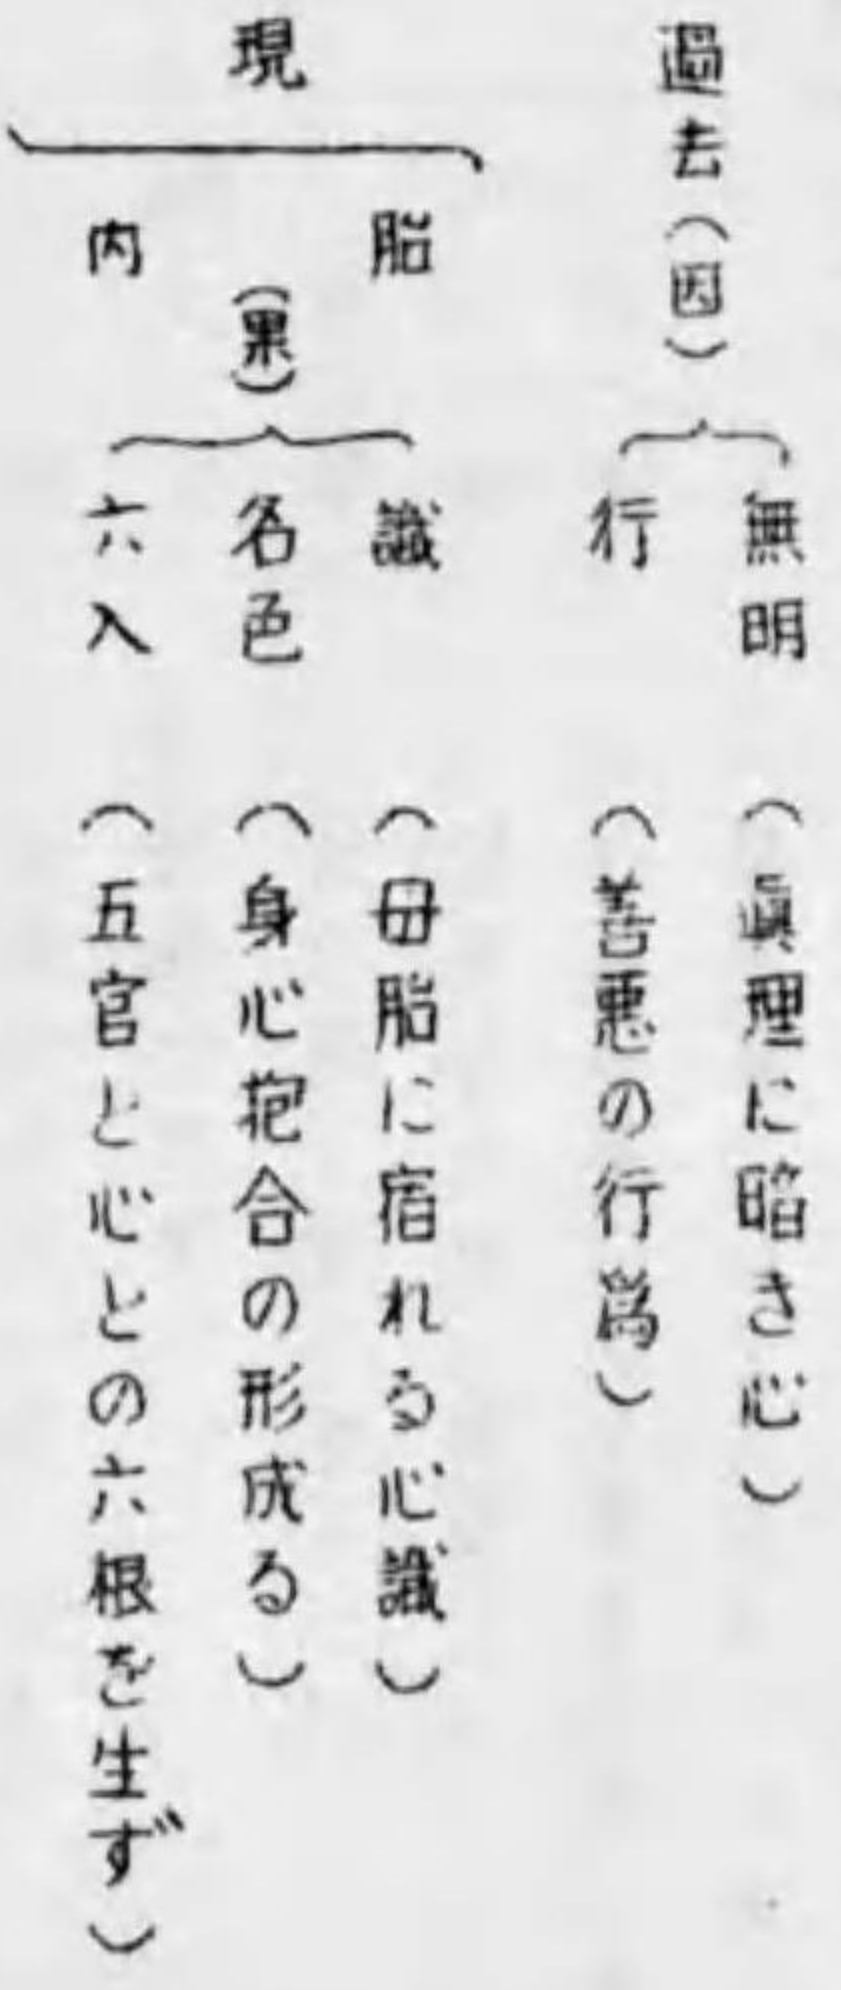 過去(因)
無明(眞理に暗き心)
行(善悪の行爲)
現
胎内
(果)
識(母胎に宿れる心識)
名色(身心抱合の形成る)
六入(五官と心との六根を生ず)